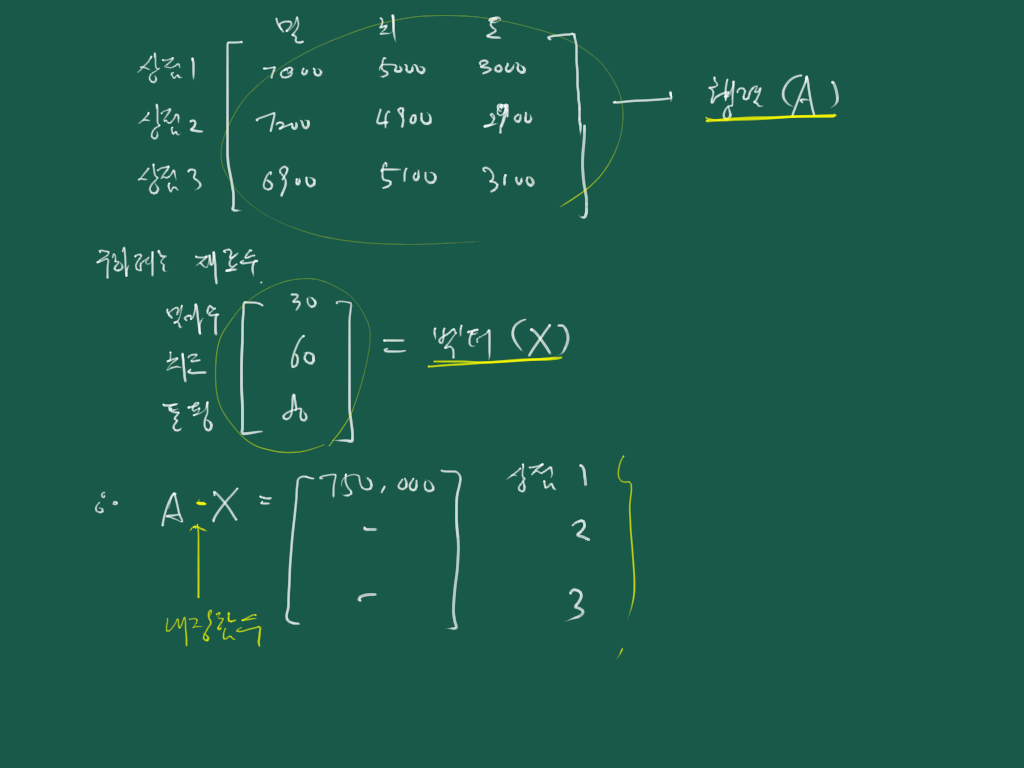 밀 치 토
상점1 7000 5000 3000
상점2 7200 4900 2900 행렬 (A)
상점3 6900 5100 3100
구하려는 재료수.
밀가루 30
치즈 60 = 벡터 (X)
토핑
∴ A · X = 750,000 상점 1
- 2
- 3
내장함수